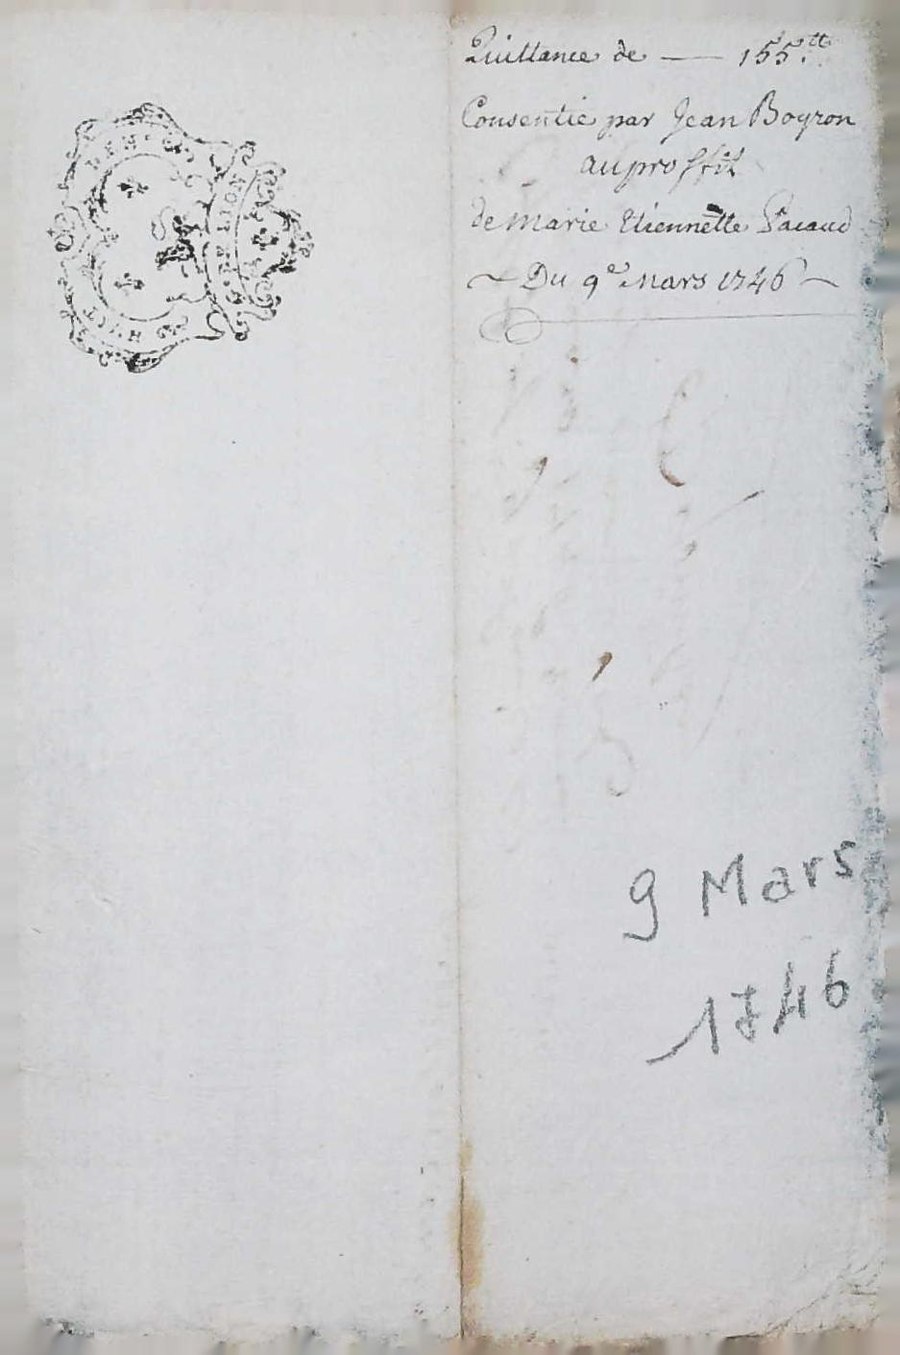 Quittance de — 155.tt
Consentie par Jean Boyron
au proffit
de Marie Etiennette Pacaud
~ Du 9e Mars 1746 ~
DE LION
HUIT
9 Mars
1746